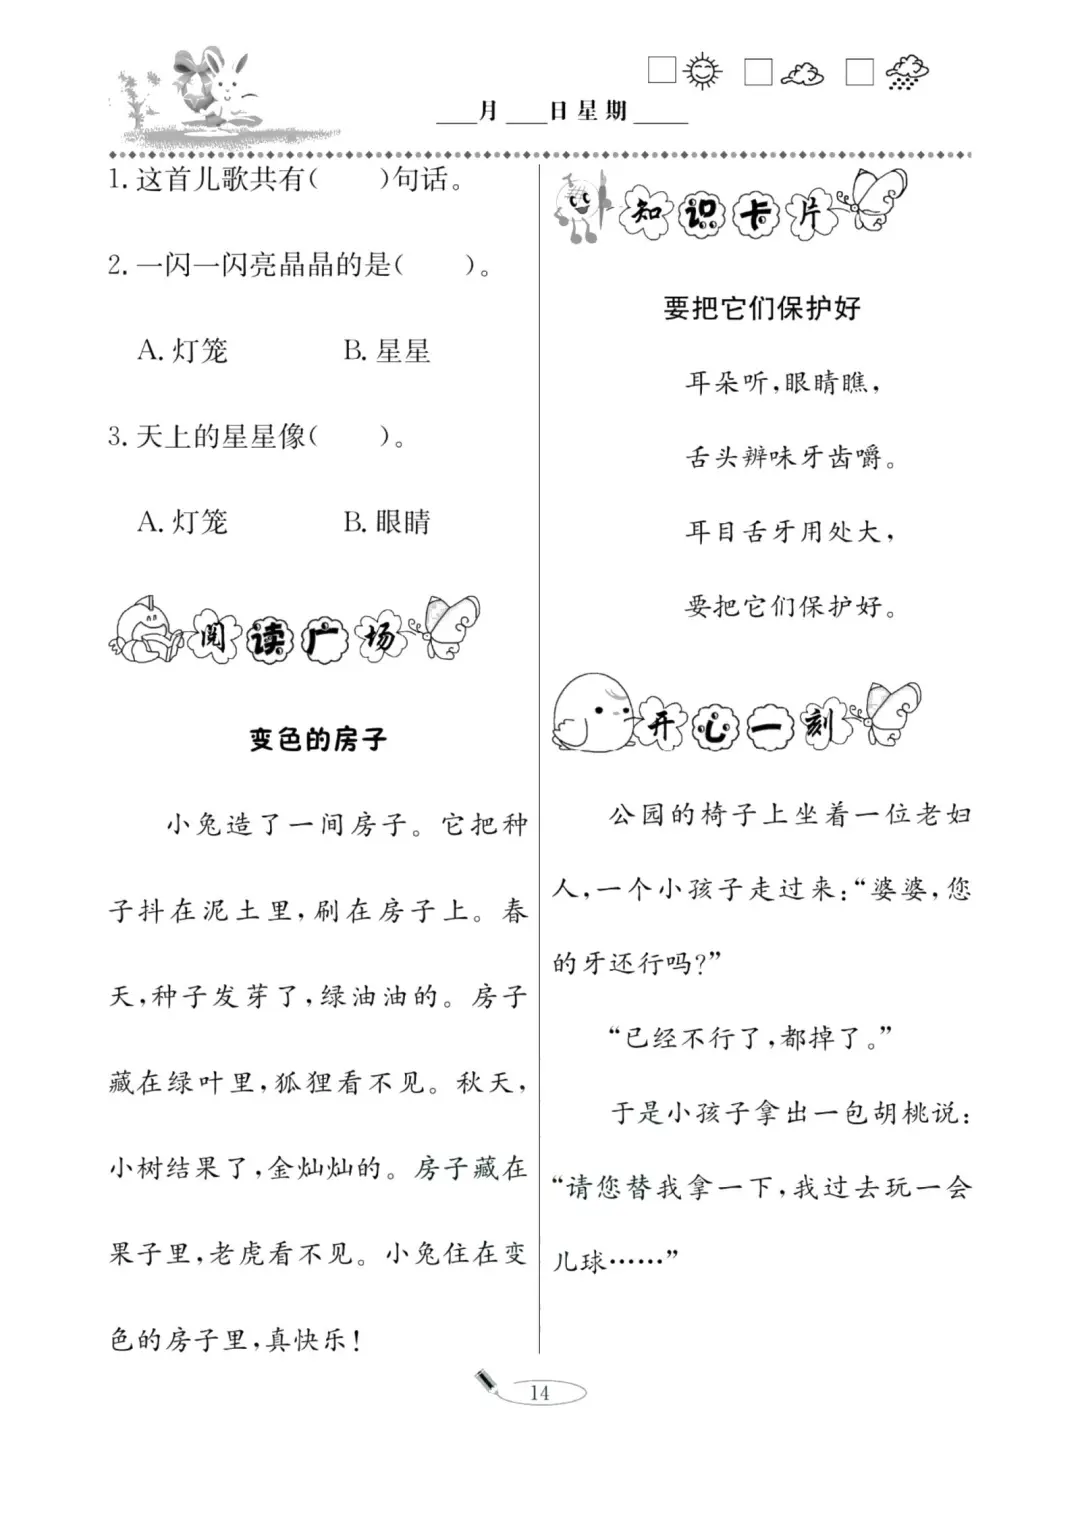 ___月 ___日 星 期 ____
1. 这首儿歌共有(　　)句话。
2. 一闪一闪亮晶晶的是(　　)。
A. 灯笼　　B. 星星
3. 天上的星星像(　　)。
A. 灯笼　　B. 眼睛
阅读广场
变色的房子
小兔造了一间房子。它把种
子抖在泥土里,刷在房子上。春
天,种子发芽了,绿油油的。房子
藏在绿叶里,狐狸看不见。秋天,
小树结果了,金灿灿的。房子藏在
果子里,老虎看不见。小兔住在变
色的房子里,真快乐!
知识卡片
要把它们保护好
耳朵听,眼睛瞧,
舌头辨味牙齿嚼。
耳目舌牙用处大,
要把它们保护好。
开心一刻
公园的椅子上坐着一位老妇
人,一个小孩子走过来:“婆婆,您
的牙还行吗?”
“已经不行了,都掉了。”
于是小孩子拿出一包胡桃说:
“请您替我拿一下,我过去玩一会
儿球……”
14